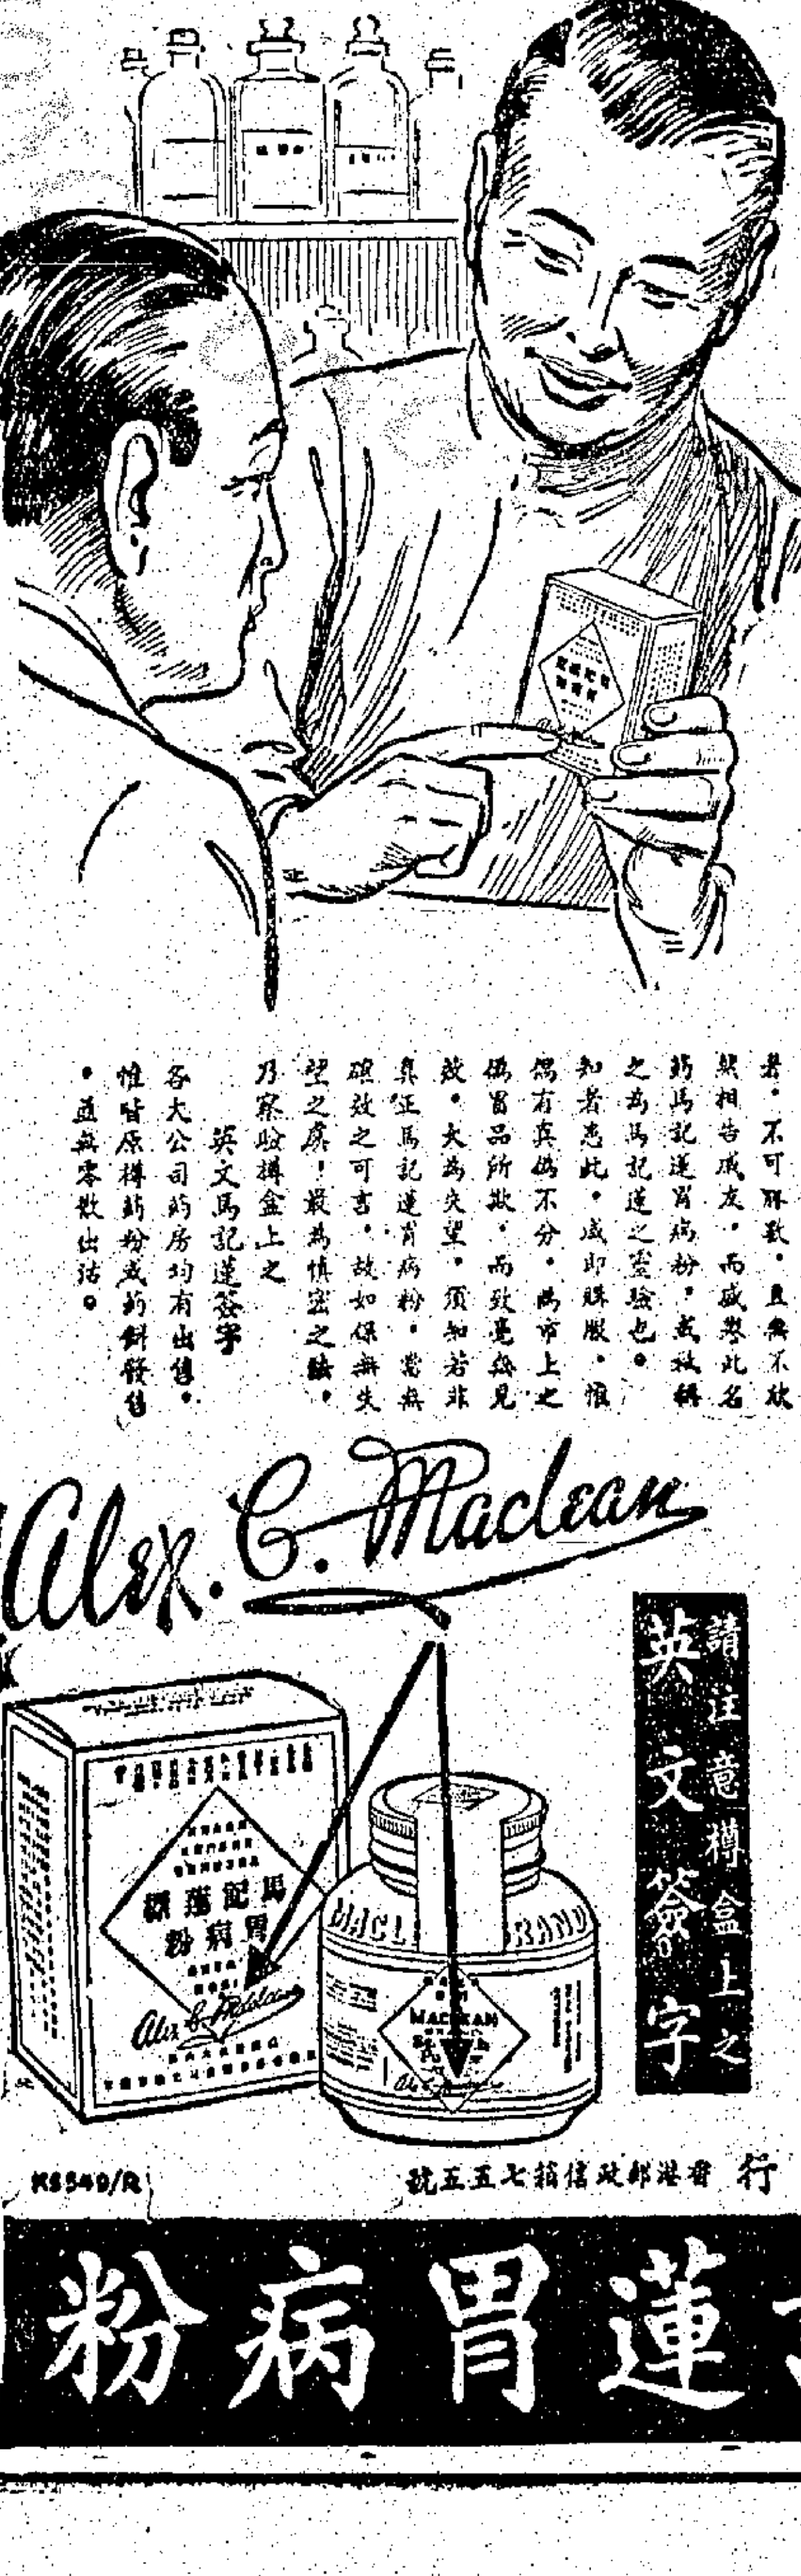 者。不可勝數。且無不欣
然相告戚友。而盛譽此名
葯馬記蓮胃病粉。或被稱
之為馬記蓮之靈驗也。
知者悉此。咸即購服。惟
偶有真偽不分。為市上之
偽冒品所欺。而致毫無見
效。大為失望。須知若非
真正馬記蓮胃病粉。當無
確效之可言。故如保無失
望之虞！最為慎密之法。
乃察驗樽盒上之
英文馬記蓮簽字
各大公司葯房均有出售。
惟皆原樽葯粉或葯餅發售
。並無零散出沽。
Alex. C. Maclean
請注意樽盒上之
英文簽字
馬記蓮標
胃病粉
Alex C. Maclean
MACL BRAND
MACLEAN
行 香港郵政信箱七五五號
KS549/R
蓮胃病粉